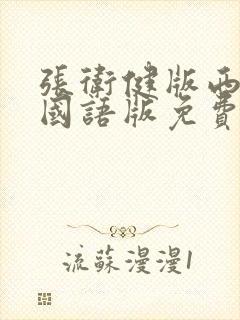 張衛健版西
國語版免費
流蘇漫漫1